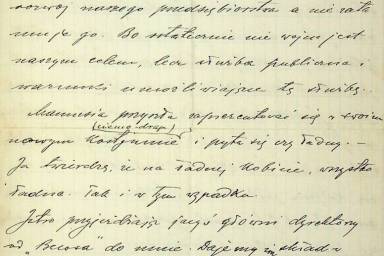 rozwój naszego przedsiębiorstwa a nie ratu
nuje go. Bo ostatecznie nie wojna jest
naszym celem, lecz służba publiczna i
warunki umożliwiające tę służbę.
Mamusia przyszła zaprezentować się w swoim
nowym kostjumie i pyta się czy ładny. –
Ja twierdzę, że na ładnej kobiecie, wszystko
ładne. Tak i w tym wypadku.
Jutro przyjeżdżają jacyś główni dyrektorzy
od "Becosa" do mnie. Dajemy im obiad w